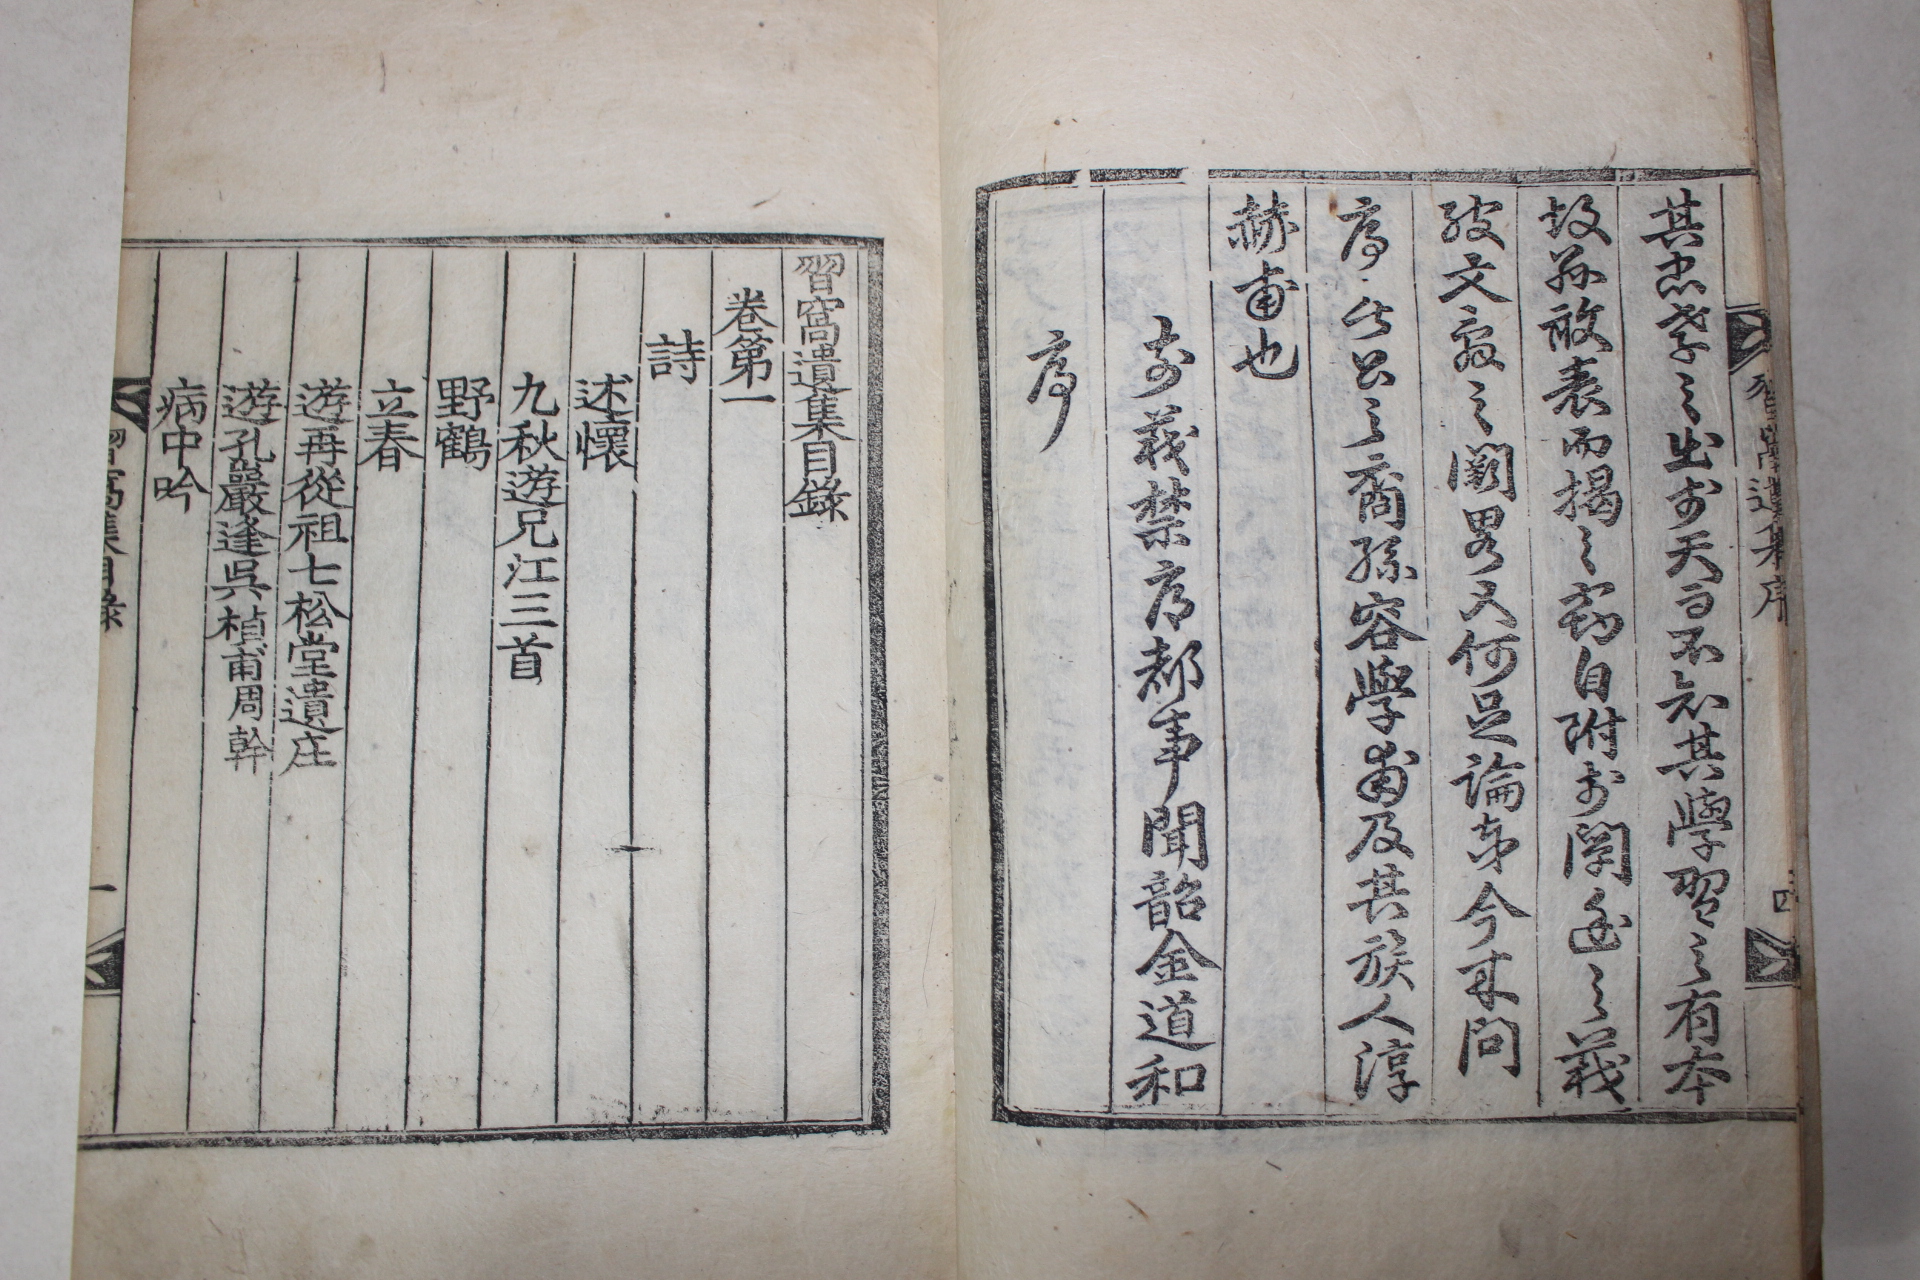 其忠孝之出於天而不知其學習之有本
故孫敢表而揭之窃自附於闡幽之義
文辭之闕畧又何足論哉今來問
序者公之裔孫容學甫及其族人淳
赫甫也
前義禁府都事聞韶金道和
序
習窩遺集序
四
習窩遺集目錄
卷第一
詩
述懷
九秋遊兄江三首
野鶴
立春
遊再從祖七松堂遺庄
遊孔巖逢吳楨甫周幹
病中吟
習窩集目錄
一